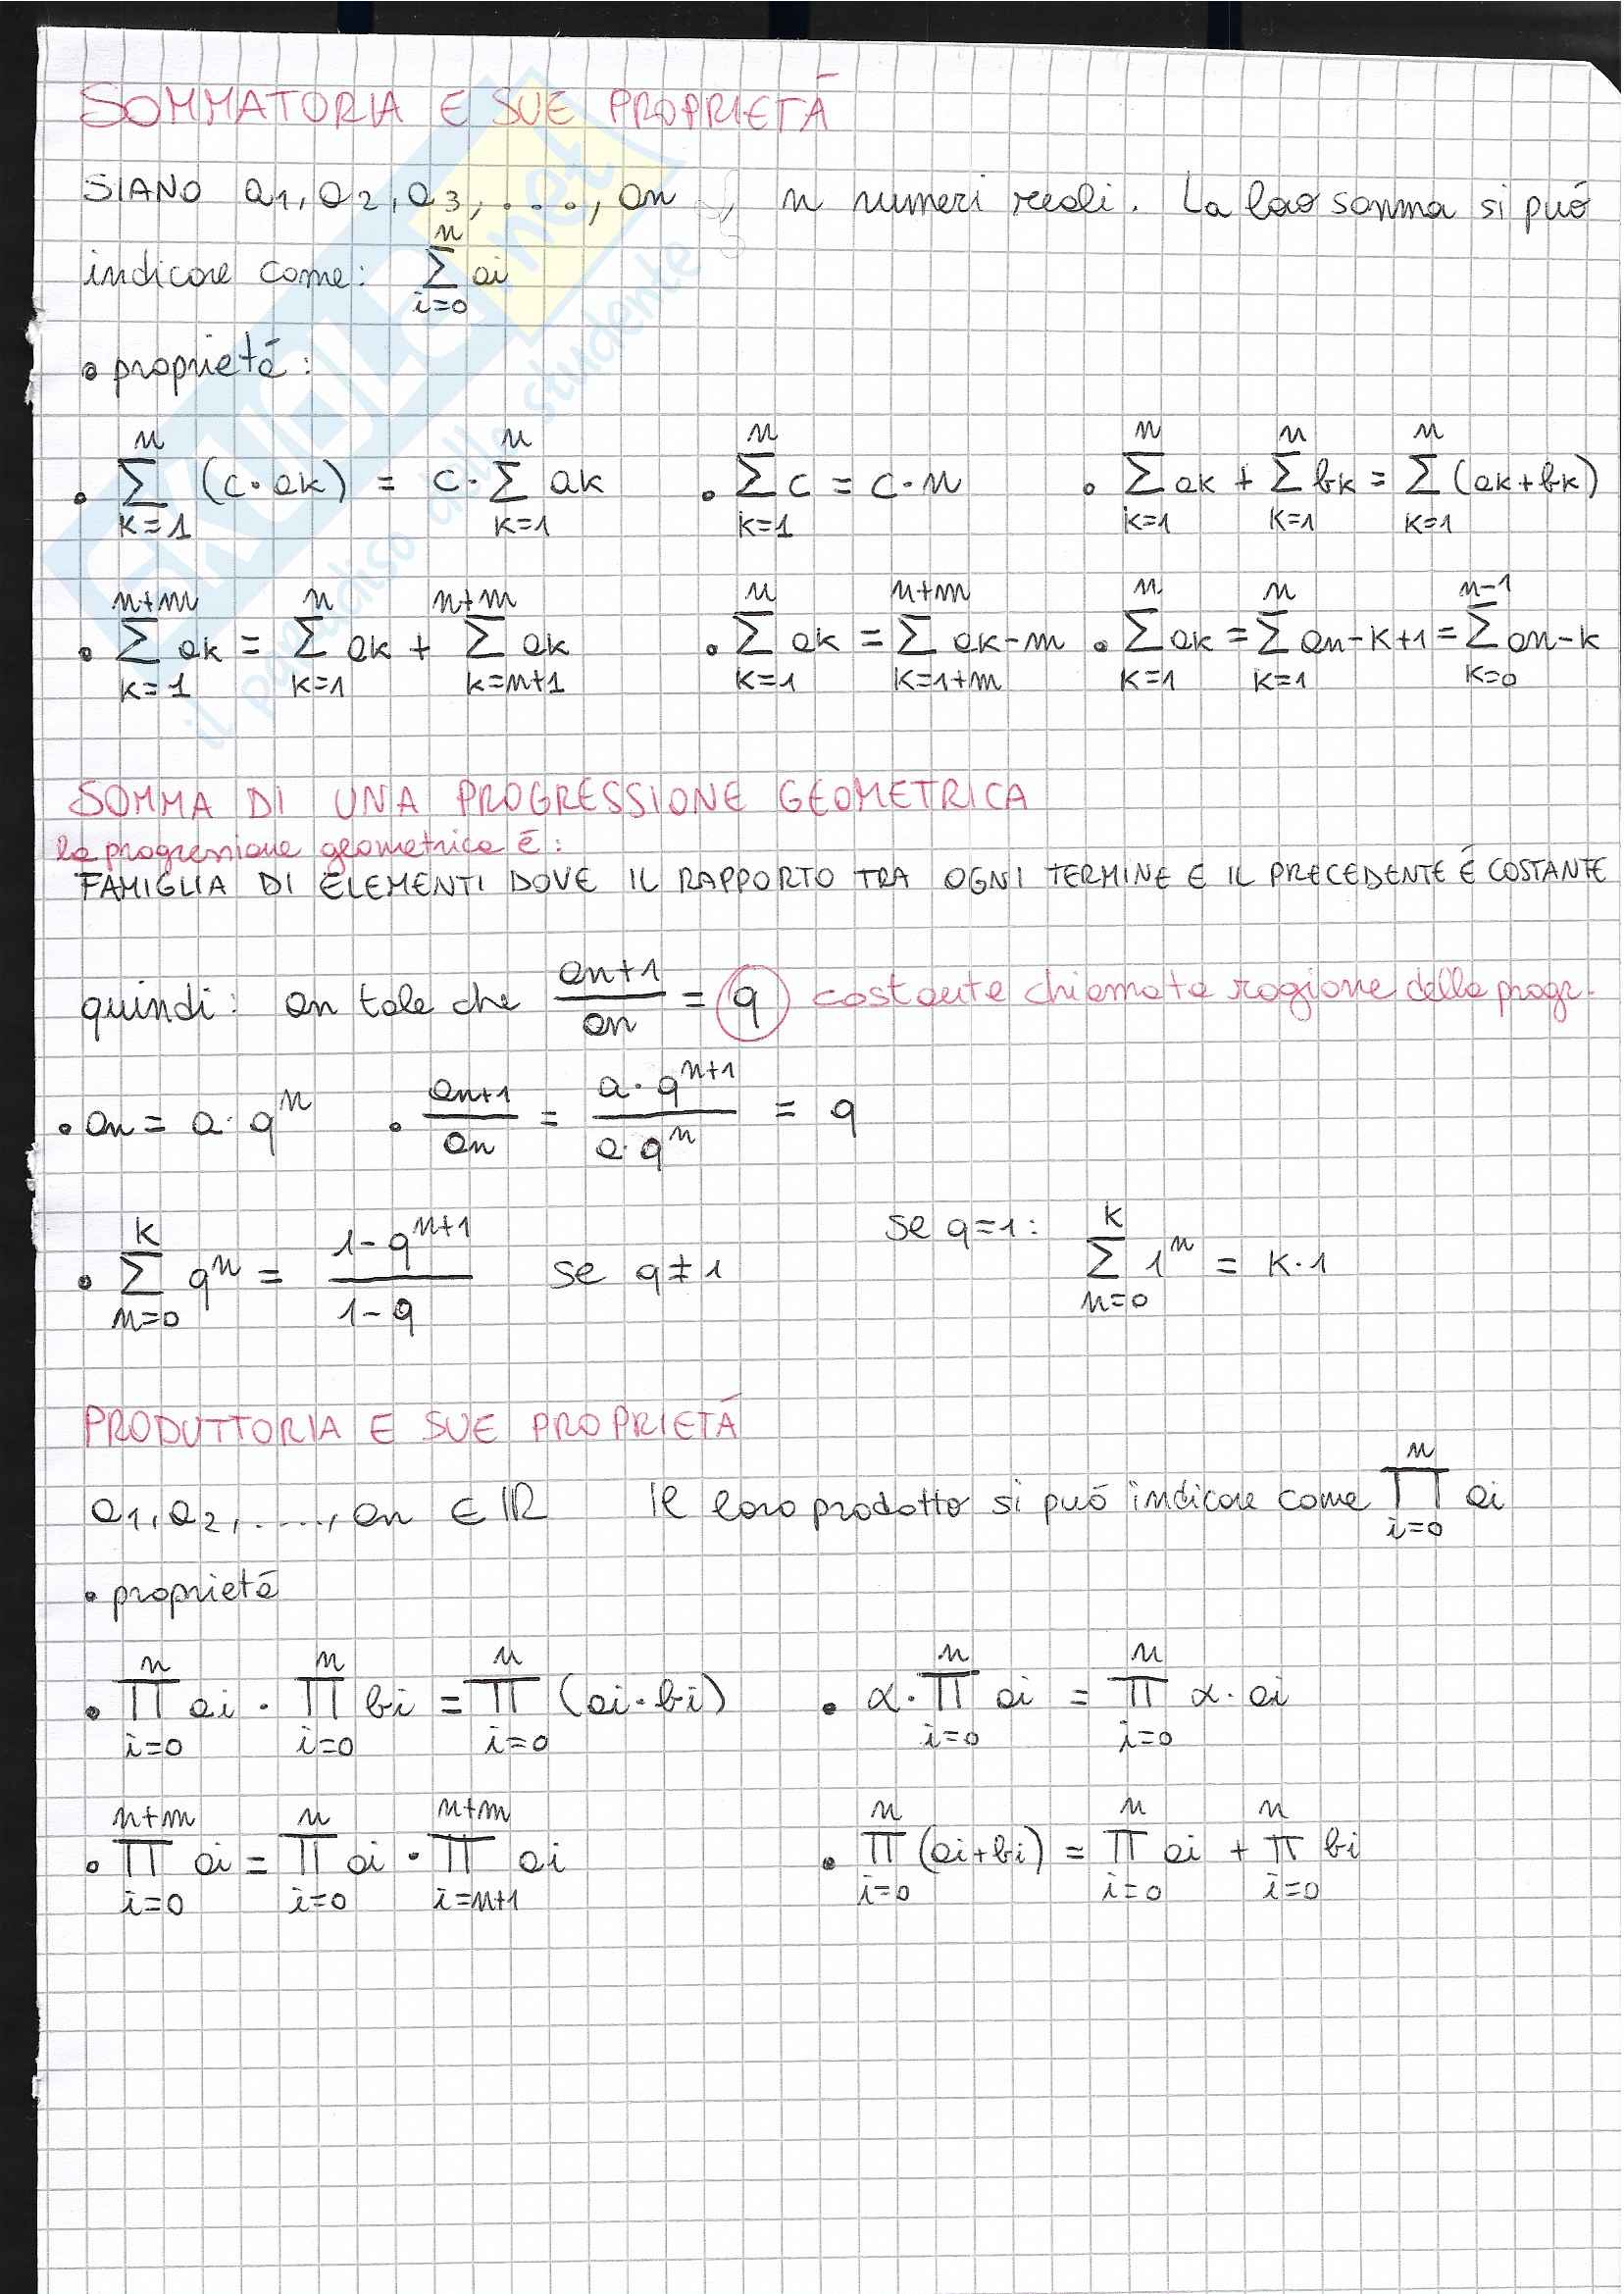 SOMMATORIA E SUE PROPRIETÁ
SIANO a1, a2, a3, ...., an, n numeri reali. La loro somma si puó
indicare come: \sum_{i=0}^{n} ai
• proprietá:
• \sum_{k=1}^{n} (c·ak) = c·\sum_{k=1}^{n} ak • \sum_{k=1}^{n} c = c·n • \sum_{k=1}^{n} ak + \sum_{k=1}^{n} bk = \sum_{k=1}^{n} (ak+bk)
• \sum_{k=1}^{n+m} ak = \sum_{k=1}^{n} ak + \sum_{k=n+1}^{n+m} ak • \sum_{k=1}^{n} ak = \sum_{k=1+m}^{n+m} ak-m • \sum_{k=1}^{n} ak = \sum_{k=1}^{n} an-k+1 = \sum_{k=0}^{n-1} an-k
SOMMA DI UNA PROGRESSIONE GEOMETRICA
la progressione geometrica é:
FAMIGLIA DI ELEMENTI DOVE IL RAPPORTO TRA OGNI TERMINE E IL PRECEDENTE É COSTANTE
quindi: an tale che \frac{an+1}{an} = q costante chiamata ragione della progr.
• an = a·q^n • \frac{an+1}{an} = \frac{a·q^{n+1}}{a·q^n} = q
• \sum_{n=0}^{k} q^n = \frac{1-q^{n+1}}{1-q} se q≠1 se q=1: \sum_{n=0}^{k} 1^n = k·1
PRODUTTORIA E SUE PROPRIETÁ
a1, a2, ...., an ∈ ℝ Il loro prodotto si puó indicare come \prod_{i=0}^{n} ai
• proprietá
• \prod_{i=0}^{n} ai · \prod_{i=0}^{n} bi = \prod_{i=0}^{n} (ai·bi) • α·\prod_{i=0}^{n} ai = \prod_{i=0}^{n} α·ai
• \prod_{i=0}^{n+m} ai = \prod_{i=0}^{n} ai · \prod_{i=n+1}^{n+m} ai • \prod_{i=0}^{n} (ai+bi) = \prod_{i=0}^{n} ai + \prod_{i=0}^{n} bi
SKUOLA.net
il paradiso dello studente